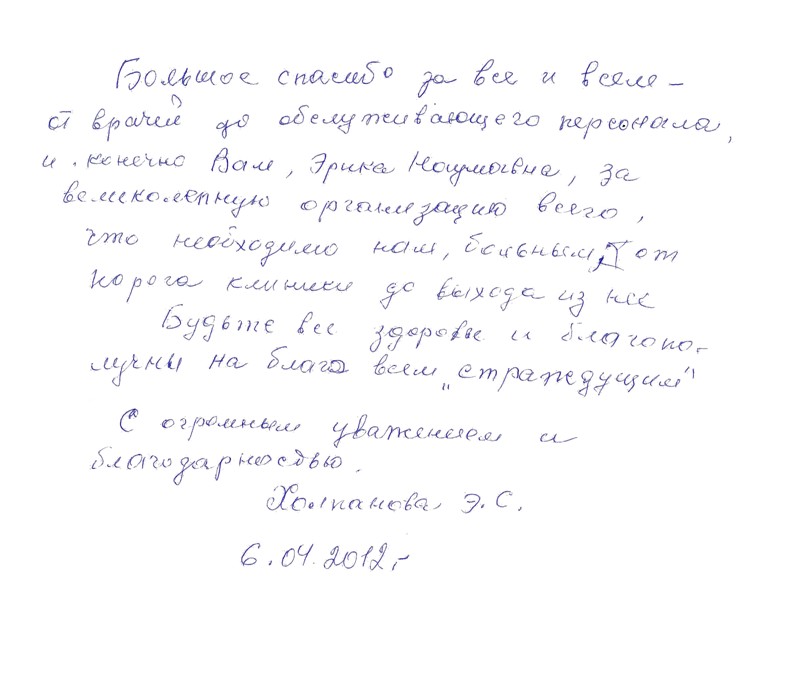 Большое спасибо за все и всем –
от врачей до обслуживающего персонала,
и конечно Вам, Эрика Наумовна, за
великолепную организацию всего,
что необходимо нам, больным, от
порога клиники до выхода из нее
Будьте все здоровы и благопо-
лучны на благо всем „страждущим"
С огромным уважением и
благодарностью.
Холпанова Э.С.
6.04.2012,-